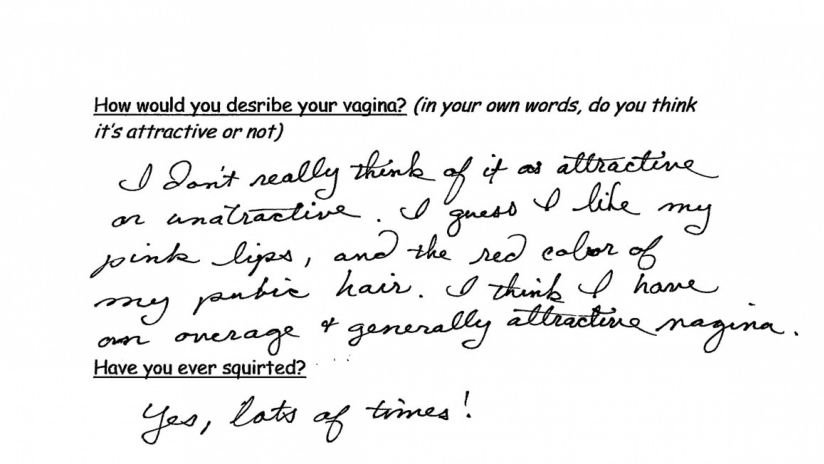 How would you desribe your vagina? (in your own words, do you think
it's attractive or not)
I don't really think of it as attractive
or unatractive. I guess I like my
pink lips, and the red color of
my pubic hair. I think I have
an average & generally attractive vagina.
Have you ever squirted?
Yes, lots of times!